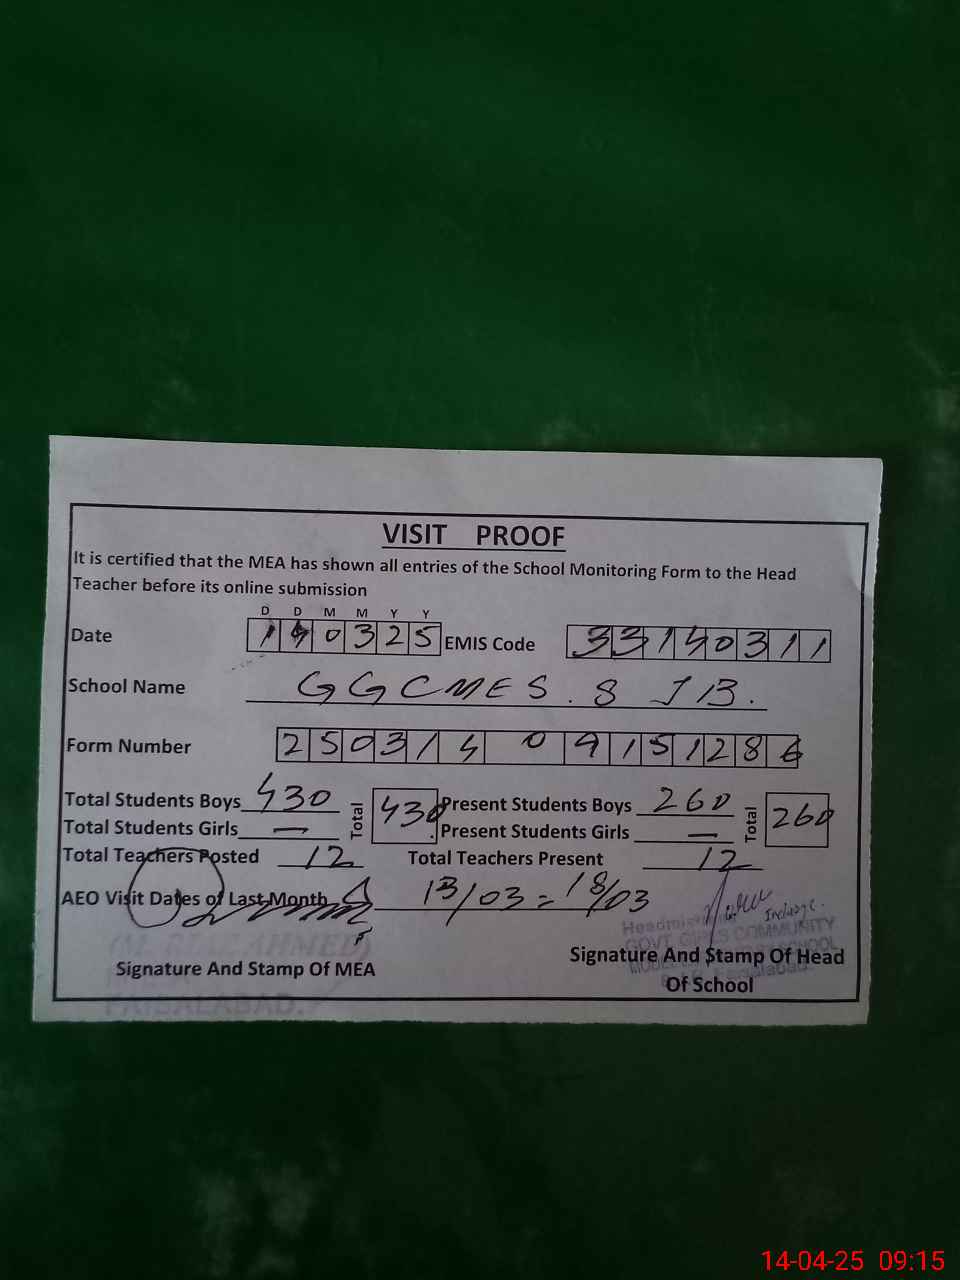 VISIT PROOF
It is certified that the MEA has shown all entries of the School Monitoring Form to the Head
Teacher before its online submission
D D M M Y Y
Date 140325 EMIS Code 33140311
School Name GGCMES. 8 JB.
Form Number 25031409151286
Total Students Boys 430 Total 430 Present Students Boys 260 Total 260
Total Students Girls — Present Students Girls —
Total Teachers Posted 12 Total Teachers Present 12
AEO Visit Dates of Last Month 13/03 = 18/03
Incharge.
GOVT. GIRLS COMMUNITY
Signature And Stamp Of MEA Signature And Stamp Of Head
Of School
FAISALABAD.
14-04-25 09:15